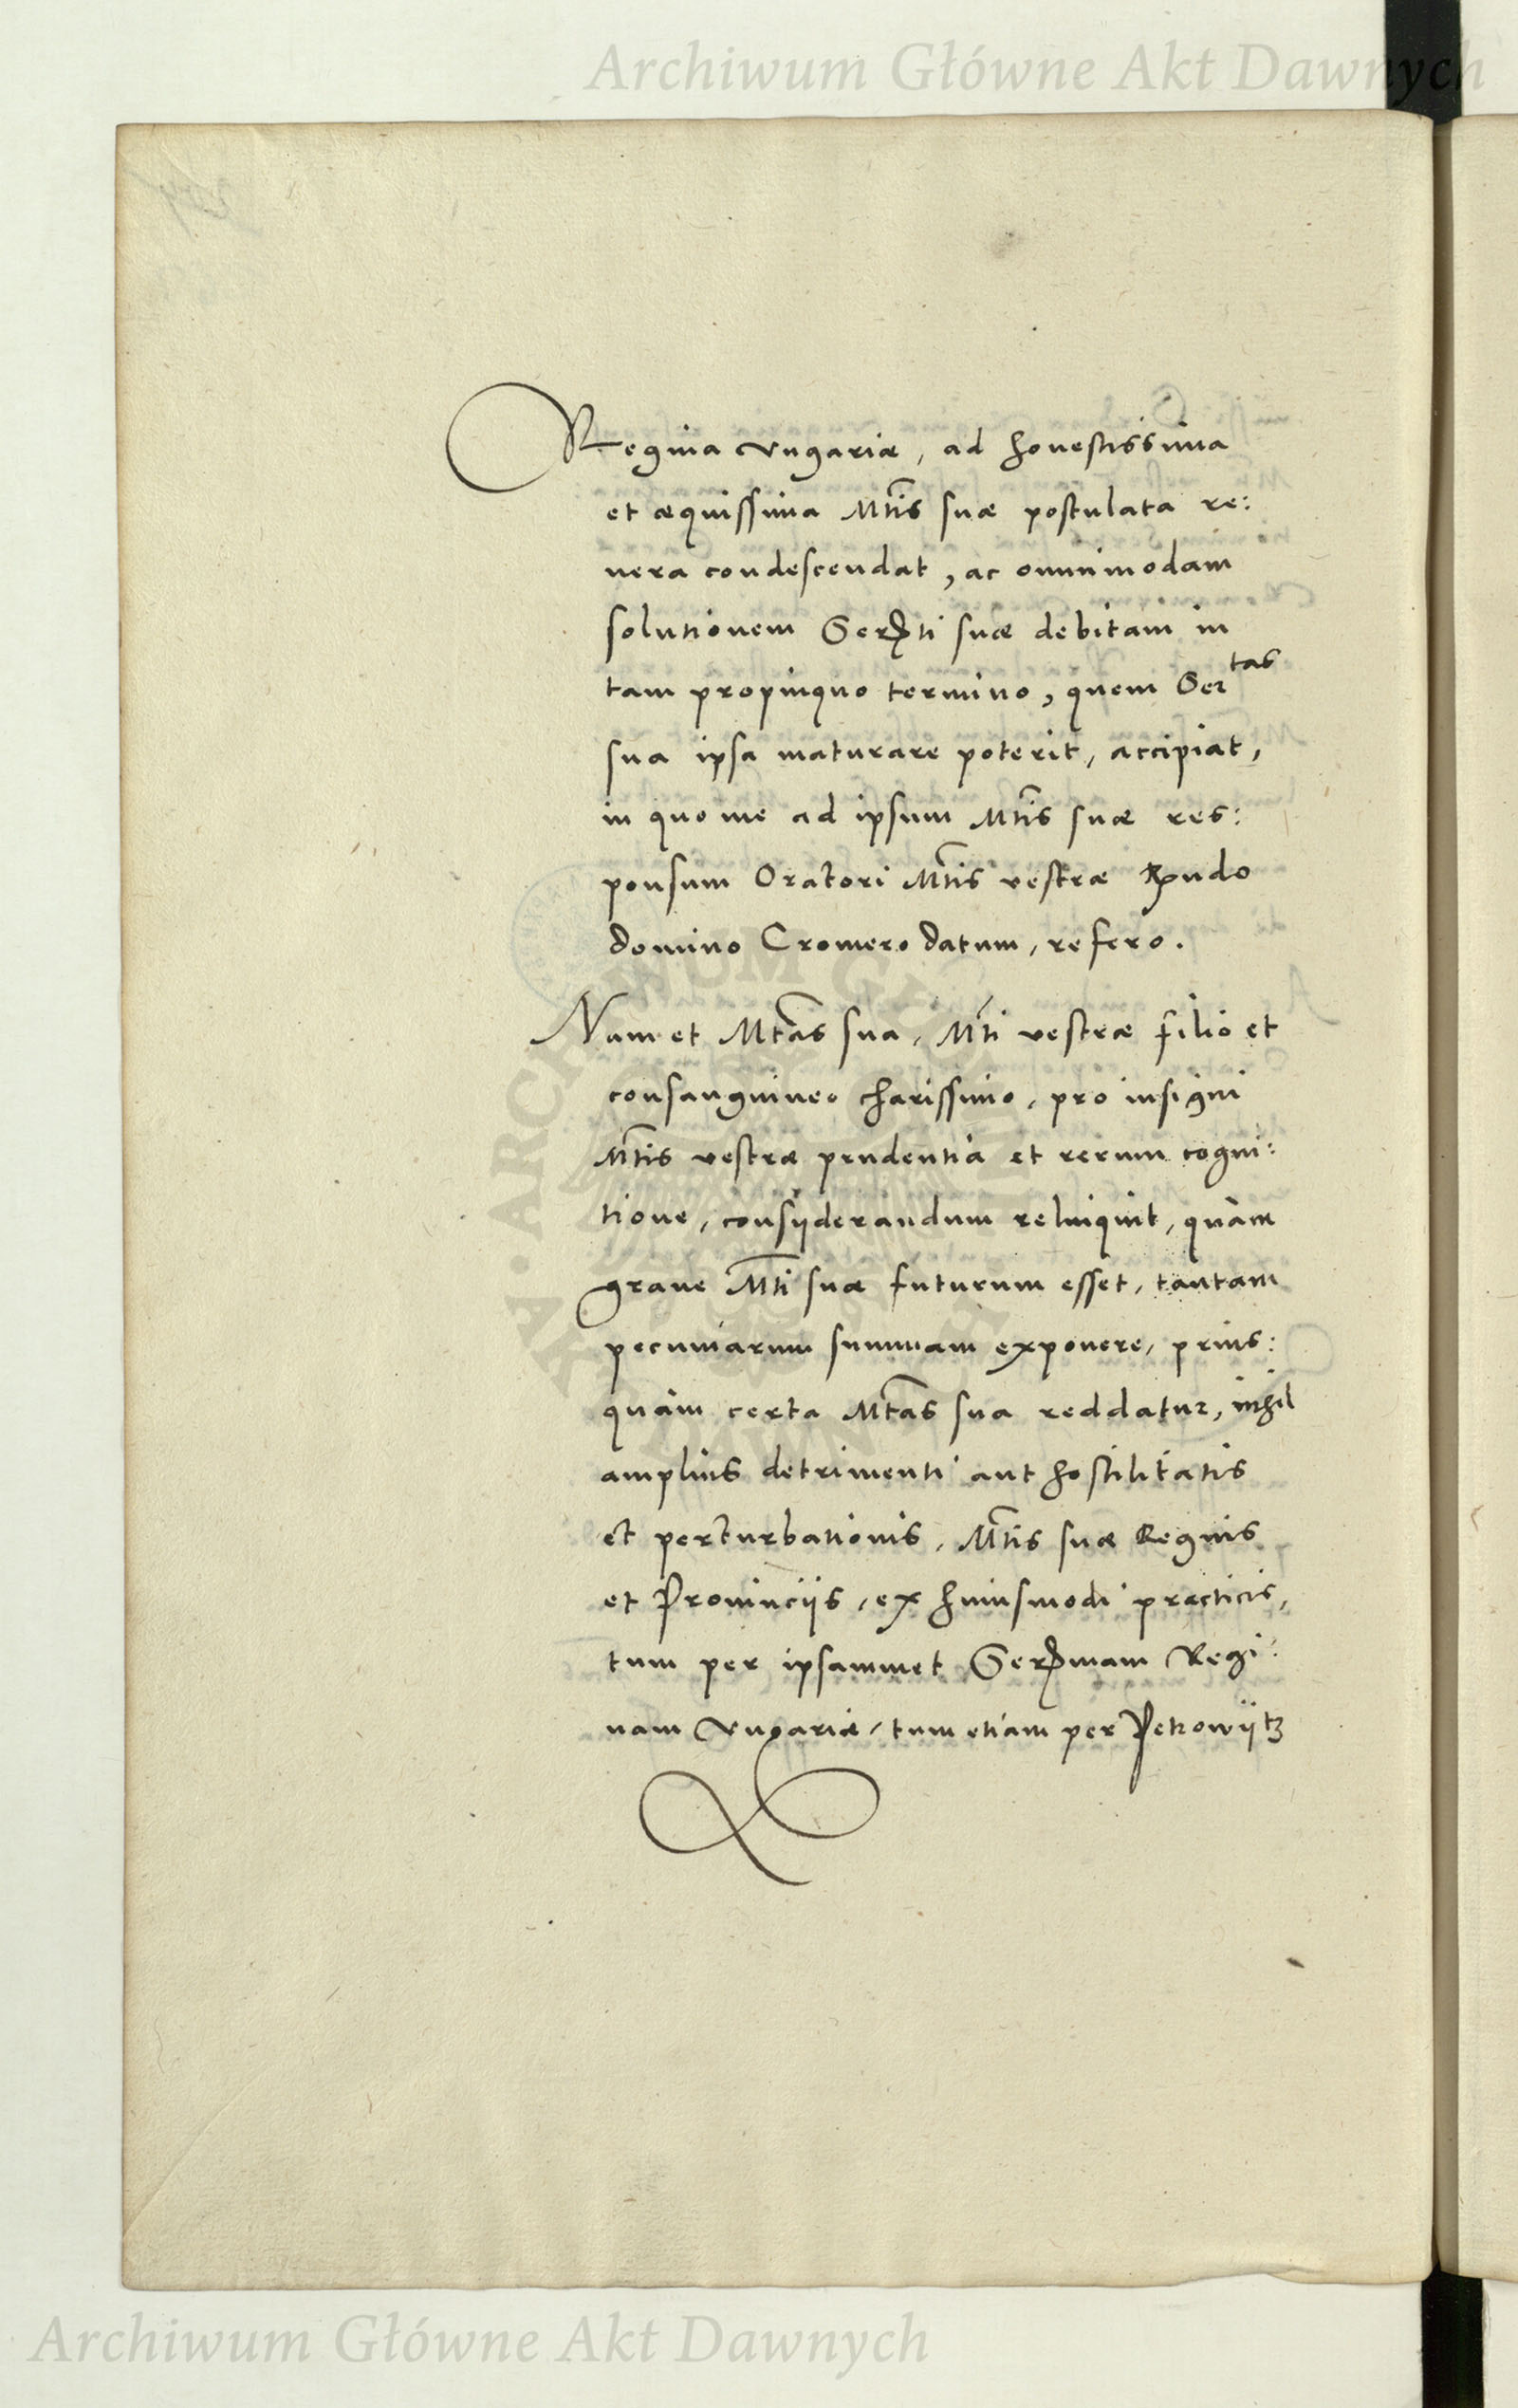 Archiwum Główne Akt Dawnych
Regina Vngariæ, ad honestissima
et æquissima Mtis suæ postulata re:
uera condescendat, ac omnimodam
solutionem Serti suæ debitam in
tam propinquo termino, quem Sertas
sua ipsa maturare poterit, accipiat,
in quo me ad ipsum Mtis suæ res:
ponsum Oratori Mtis vestræ Rndo
domino Cromero datum, refero.
Nam et Mtas sua, Mti vestræ filio et
consanguineo charissimo, pro insigni
Mtis vestræ prudentia et rerum cogni:
tione, consyderandum relinquit, quàm
graue Mti suæ futurum esset, tantam
pecuniarum summam exponere, prius:
quàm certa Mtas sua reddatur, nihil
amplius detrimenti aut hostilitatis
et perturbationis, Mtis suæ Regnis
et Prouinciis, ex huiusmodi practicis,
tum per ipsammet Sermam Regi:
nam Vngariæ, tum etiam per Petrowytz
Archiwum Główne Akt Dawnych